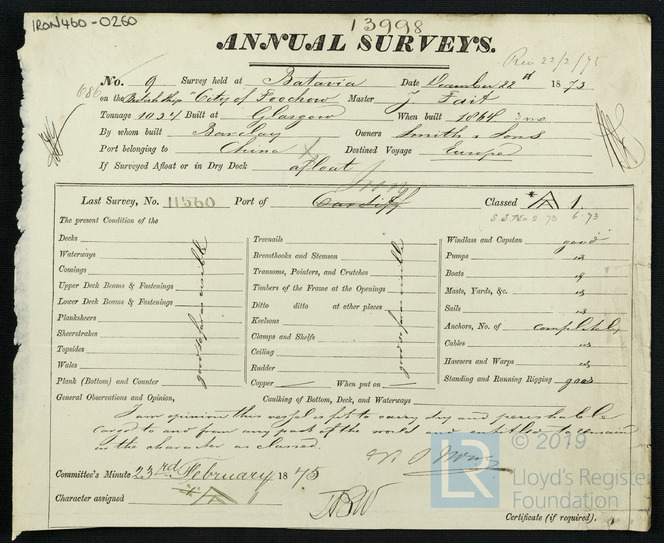 IRON460-0260
13998
ANNUAL SURVEYS.
Rec 22/2/75
686
No. 9 Survey held at Batavia Date December 22d 1873
on the British Ship "City of Foochow" Master J Tait
Tonnage 1034 Built at Glasgow When built 1864 3 mo
By whom built Barclay Owners Smith & Sons
Port belonging to China Destined Voyage Europe
If Surveyed Afloat or in Dry Dock afloat
Last Survey, No. 11560 Port of Cardiff Classed A 1
S.S. No. 2 73 6.73
The present Condition of the
Decks
Waterways
Comings
Upper Deck Beams & Fastenings
Lower Deck Beams & Fastenings
Planksheers
Sheerstrakes
Topsides
Wales
Plank (Bottom) and Counter
good as far as visible
Treenails
Breasthooks and Stemson
Transoms, Pointers, and Crutches
Timbers of the Frame at the Openings
Ditto ditto at other places
Keelsons
Clamps and Shelfs
Ceiling
Rudder
Copper When put on
good as far as visible
Windlass and Capstan good
Pumps
Boats
Masts, Yards, &c.
Sails
Anchors, No. of complete
Cables
Hawsers and Warps
Standing and Running Rigging good
General Observations and Opinion, Caulking of Bottom, Deck, and Waterways
I am opinion this vessel is fit to carry dry and perishable
cargo to and from any part of the world and entitled to remain
in the character as classed.
Committee's Minute 23rd February 1875
Character assigned A
Certificate (if required).
© 2019
LR
Lloyd's Register
Foundation